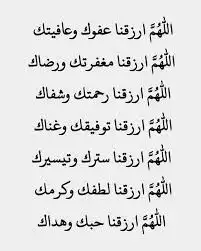 اللَّهُمَّ ارزقنا عفوك وعافيتك
اللَّهُمَّ ارزقنا مغفرتك ورضاك
اللَّهُمَّ ارزقنا رحمتك وشفاك
اللَّهُمَّ ارزقنا توفيقك وغناك
اللَّهُمَّ ارزقنا سترك وتيسيرك
اللَّهُمَّ ارزقنا لطفك وكرمك
اللَّهُمَّ ارزقنا حبك وهداك